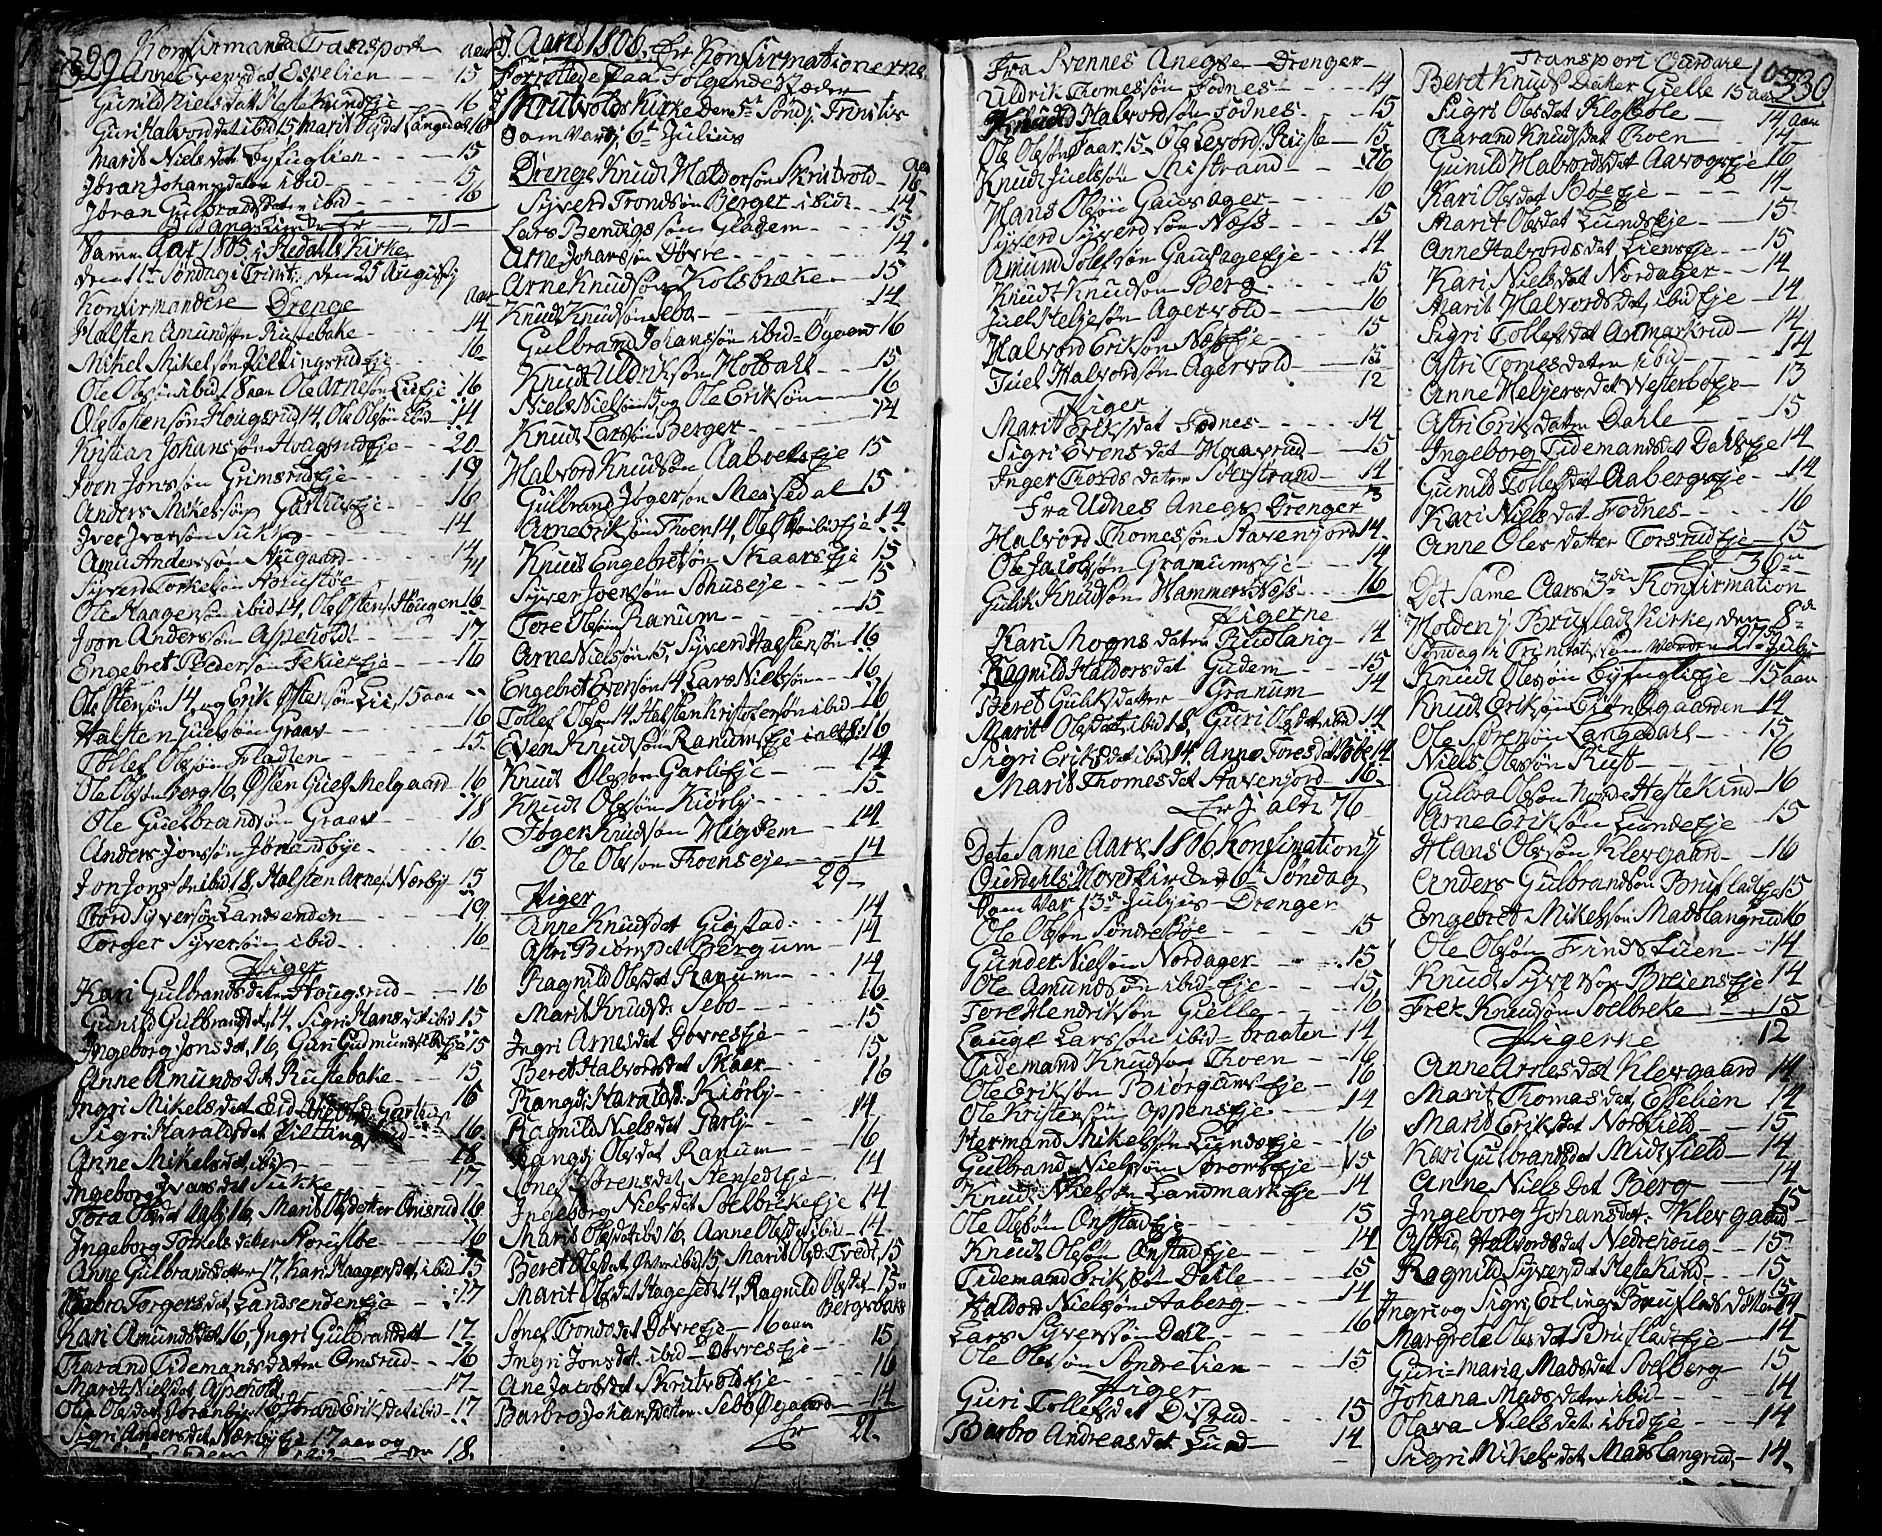 329 Konfirmanda Transport aar
Anne Evensdat Espelien - - 15
Gunild Nielsdat Hestekindeje - 16
Guri Halvorddat ibid 15 Marit Olsdat Langedal 16
Marit Nielsdat Byfuglien - - 15
Jøran Johansdatter ibid - - 15
Jøran Gulbrandsdatter ibid - - 16
Samme Aar 1805 i Hedalls Kirke
den 11te Søndag i Trinit: den 25 Augusty
Konfirmandere Drenge aar
Halsten Amundsøn Rustebake - 14
Mikel Mikelsøn Pillingsrudeje - 16
Ole Olsøn ibid 18 aar Ole Arnesøn Lieje 16
Ole Ostensøn Hougsrud 14, Ole Olsøn ibid 14
Kristian Johanssøn Hougsrudeje - 20
Joen Jonssøn Grimsrudeje - 19
Anders Mikelsøn Garliuseje - 16
Iver Ivarsøn Sukke - 14
Amun Anderssøn Nugaard - 14
Syverd Torkelsøn - 14
Ole Haagensøn ibid 14, Ole Østens: Hougen 16
Joen Anderssøn Aspeholdt - 17
Engebret Pedersøn - 16
Ole Ostensøn 14, og Erik Østensøn Lie, 15 aar
Halsten Juelsøn Graav - 16
Tollef Olsøn Fladten - 15
Ole Olsøn Berg 16, Østen Melgaard 16
Ole Guelbrandsøn Graav - 18
Anders Jonssøn Jørandbye - 16
Jon Jonsøn ibid 18, Halsten Arnes: Nærby 15
Tord Syversøn Landsenden - 19
Torger Syversøn ibid - 16
Piger
Kari Gulbrandsdatter Hougsrud - 16
Gunild Gulbrandsdat 14, Sigri Hansdat ibid 15
Ingeborg Jonsdat, 16, Guri Gudmundsd ibid 15
Anne Amundsdat Rustebake - 15
Ingri Mikelsdat Eid 16
Sigri Haraldsdat Pillingsrud 16
Anne Mikelsdat, ibid - 18
Ingeborg Ivarsdat Sukke - 17
Tora Olsdat 16, Marit Olsdatter Omsrud 16
Ingeborg Torkelsdatter - 16
Anne Gulbrandsdatter 17, Kari Haagensdat, ibid 15
Barbro Torgersdat, Landsendeneje - 17
Kari Amundsdat 16, Ingri Gulbrandsdat 17
Tharand Tidemandsdatter Omsrud - 16
Marit Nielsdat Aspeholt - 17
Oliv Olsdat Jørandbye 16 Jørand Eriksdat ibid - 17
Sigri Andersdat Nærbyeje 17 aar og
18
I Aaret 1806. Er Konfirmationerne
Forrettede paa Følgende Stæder
I Skrutvolds Kirke den 5te Sønd: Trinitis
Som Var 6te Julius
Drenge Knud Haldorsøn Skrutvold - 16
Syverd Trondsøn Berger ibid: - 14
Lars Bendigssøn Gladem - 15
Arne Johansøn Døvre - 14
Arne Knudsøn Kolsbræke - 15
Knud Knudsøn Sebo - 14
Gulbrand Johanssøn ibid Øgaard 16
Knud Uldriksøn Hovdahl - 15
Niels Nielsøn 15 og Ole Eriksøn - 16
Knud Larssøn Berger - 14
Halvord Knudsøn Aaboleseje 15
Gulbrand Jøgersøn Mensedal - 15
Arne Eriksøn Thoen 14, Ole Olsøn ibid Eje 14
Knud Engebretsøn Skaarseje 15
Syver Joensøn Sohuseje - 15
Tore Olsøn Ranum - 15
Arne Nielsøn 15, Syverd Halstensøn 16
Engebret Evensøn 14 Lars Nielsøn - 16
Tollef Olsøn 14, Halsten Kristofersøn ibid 16
Even Knudsøn Ranumseje 16
Knud Olsøn Garlieje - 14
Knud Olsøn Kiørlj - 15
Jøger Knudsøn Higdem - 14
Ole Olsøn Thoenseje - 14
29
Piger
Anne Knudsdat Giøstad - 14
Astri Biørnsdat Bergum - 14
Ragnild Olsdat Ranum - 14
Marit Knudsd: Sebo - 16
Ingri Arnesdat Døvreseje - 15
Beret Halvordsdat Skaar - 15
Rangdi Haraldsd: Kiørlj - 16
Ragnild Nielsdat Garlj - 14
Rangdi Olsdat Ranum - 16
Sønef Sørensdat Stensedteje - 14
Ingeborg Nielsdat Soelbrekeje 14
Marit Olsdat ibid 16, Anne Olsdat ibid - 14
Beret Olsdat ibid 15 Marit Olsd: Tvedt, 15
Marit Olsdat Hageset 14, Ragnild Olsdat 15
Bergsbak
Sønef Trondsdat Døvreeje - 16 aar
Ingri Jonsdat ibid = Døvreseje - 15
Ane Jacobsdat Skrutvoldseje - 16
Barbro Johansdatter Sebo Øgaard - 14
Er 21.
Fra Svennes Anegse Drenger
Uldrik Thomessøn Fødnes - 14
Knud Halvordsøn Fodnes - 15
Ole Olsøn Faar 15 Ole Levord: Ruste - 15
Knud Juelssøn Mistrand - 16
Hans Olsøn Gausager - 16
Syverd Syverdsøn Noss - 15
Amund Tolefsøn Gausageseje - 14
Knud Knudsøn Berg - 15
Juel Heljesøn Agervold - 16
Halvord Eriksøn Næseje - 15
Juel Halvordsøn Agervold - 15
12
Piger
Marit Eriksdat Fødnes - 14
Sigri Evensdat Haavrud - 15
Inger Thordsdatter Strand - 14
3
Fra Udnes Anegs Drenger
Halvord Thomessøn Stavenjord 14
Ole Jacobsøn Granumseje - 14
Gulik Knudsøn Hammers Noss - 16
Pigerne
Kari Mognsdatter Rudlang - 14
Ragnild Haldorsdat Gudem - 15
Beret Guliksdatter Granum 14
Marit Olsdat, ibid 18, Guri Olsdat ibid 14
Sigri Eriksdat ibid 14 Anne Toresdat 14
Marit Thomesdat Stavenjord - 16
Er J alt 76
Dete Same Aars 1806 Konfirmation J
Ourdahls Hovedkirke den 6te Søndag
Som Var 13de Julius - Drenger
Ole Olsøn Søndrebøe - 15
Gunder Nielsøn Nordager - 15
Ole Amundsøn ibid = Eje - 15
Tore Hendriksøn Gielle - 16
Lauge Larssøn ibid = braaten 14
Tidemand Knudsøn Thoen - 16
Ole Eriksøn Biorgumseje - 16
Ole Kristensøn Oppenseje - 14
Hermand Mikelssøn Lundeeje - 16
Gulbrand Nielssøn Stromseje - 15
Knud Nielsøn Landmarkeje 14
Ole Olsøn Onstadeje - 15
Knud Olsøn Onstadeje - 14
Tidemand Eriksøn Dahle - 15
Halvord Nielsøn Aaberg - 14
Lars Syverssøn Dahle - 16
Ole Olsøn Søndrelien - 15
Piger
Guri Tollefsdat Disrud - 15
Barbro Andreasdat Lund - 14
Transport Ourdare 10 330
Beret Knuds Datter Gielle 15 aar
Sigri Olsdat Klosbøle - 14 aar
Tharand Knudsdat Thoen - 14
Gunild Halvordsdat Aavogseje 16
Kari Olsdat Boeje - 14
Marit Olsdat Lundseje - 15
Anne Halvordsdat Lienseje - 15
Kari Nielsdat Nordager - 14
Marit Halvordsdat, ibid Eje - 14
Sigri Tollefsdat Anmarkrud - 14
Astri Tomesdatter ibid - 14
Anne Heljersdat Westerbøeje - 13
Astri Eriksdatter Dahle - 15
Ingeborg Tidemandsdat Dahleeje 14
Gunild Tollefsdat Aabergseje - 14
Kari Nielsdat Fødnes - 16
Anne Olesdatter Torsrudeje - 15
Er 36
Det Same Aars 3die Konfirmation
Holden J Bruflad Kirke, den 8de
Søndag i Trinitatis Som Var den 27de Julj:
Knud Olsøn Byfuglieje - 15 aar
Knud Eriksøn Biørnegaarden 14
Ole Sørensøn Langedahl - 15
Niels Olssøn Rust - 16
Gulbra Olsøn Nordre Hestekind - 16
Arne Eriksøn Lundeeje 15
Hans Olssøn Klevgaard - 16
Anders Gulbrandsøn Brufladeje 15
Engebret Mikelssøn Madslangrud 16
Ole Olsøn Frindsluen - 14
Knud Syversøn Breienseje 14
Frek Knudsøn Soelbreke - 15
Pigerne 12
Anne Arnesdat Klevgaard 14
Marit Thomasdat, Espelien 14
Marit Eriksdat Nordlield - 15
Kari Gulbrandsdat Midtlield - 14
Anne Nielsdat Berg - 14
Ingeborg Johansdat: Klevgaard 15
Astrid Halvordsdat Nedrehoug - 15
Ragnild Syversdat Hestekind - 15
Ingri og Sigri Erlings Bruflads døttre 15 14
Margrete Olesdat Brufladeje - 14
Guri = Maria Madsdat Soelberg 15
Johana Madsdatter ibid - 14
Olava Nielsdat ibid Eje - 14
Sigri Mikelsdat Madslangrud - 14